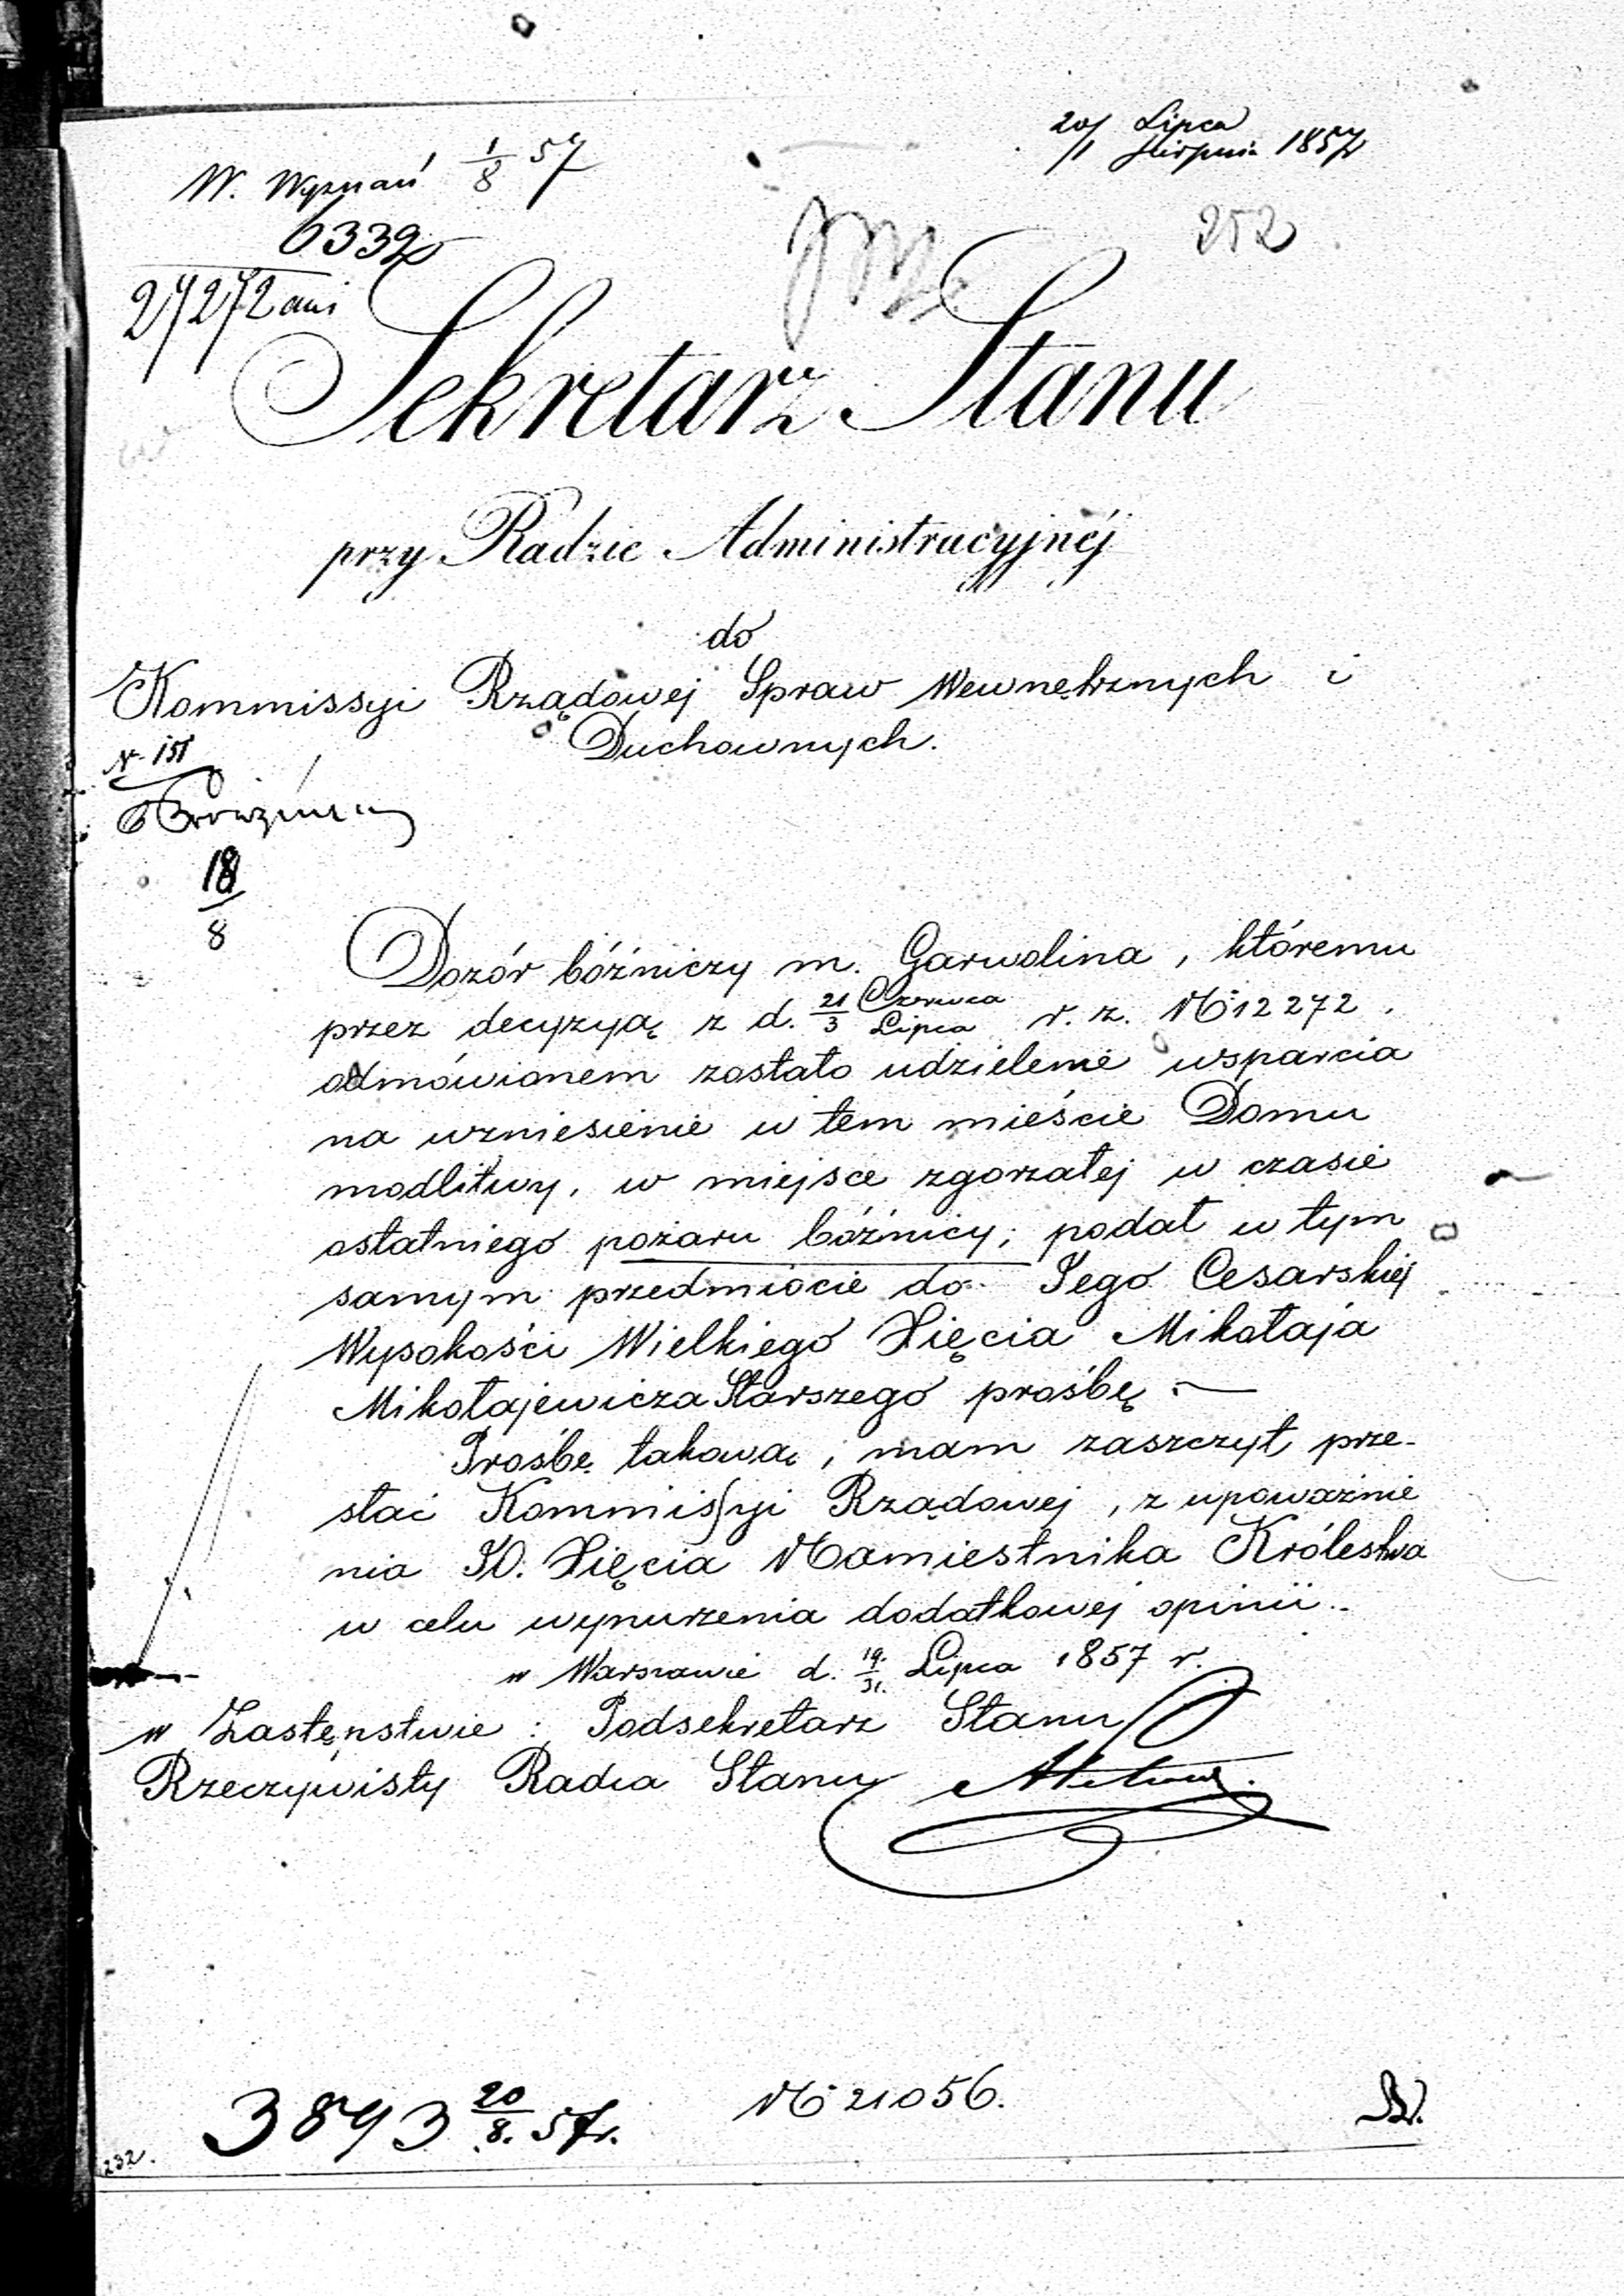 20/1 Lipca Sierpnia 1857
W. Wyznań 1/8 57
6332
252
Sekretarz Stanu
przy Radzie Administracyjnéj
do
Kommissyi Rządowej Spraw Wewnętrznych i
Duchownych.
18/8
Dozór bóźniczy m. Garwolina, któremu
przez decyzyą z d. 21/3 Czerwca/Lipca r. z. N 12272.
odmówionem zostało udzielenie wsparcia
na wzniesienie w tem mieście Domu
modlitwy, w miejsce zgorzałej w czasie
ostatniego pożaru bóźnicy; podał w tym
samym przedmiocie do Jego Cesarskiej
Wysokości Wielkiego Xięcia Mikołaja
Mikołajewicza Starszego prośbę.—
Prośbę takową, mam zaszczyt prze-
słać Kommissyi Rządowej, z upoważnie
nia JO. Xięcia Namiestnika Królestwa
w celu wynurzenia dodatkowej opinii.
w Warszawie d. 19/31 Lipca 1857 r.
w Zastępstwie: Podsekretarz Stanu
Rzeczywisty Radca Stanu
3893 20/8. 57r.
N 21056.
232.